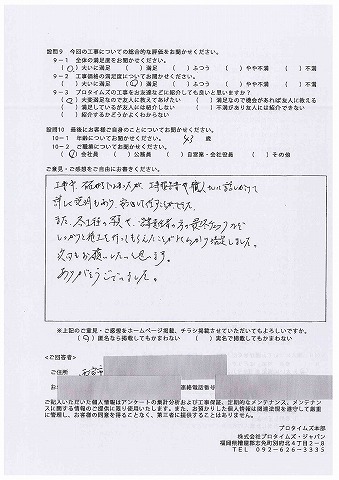 設問9　今回の工事についての総合的な評価をお聞かせください。
9－1　全体の満足度をお聞かせください。
(○)大いに満足　(　)満足　(　)ふつう　(　)やや不満　(　)不満
9－2　工事価格の満足度についてお聞かせください。
(　)大いに満足　(○)満足　(　)ふつう　(　)やや不満　(　)不満
9－3　プロタイムズの工事をお友達などに紹介しても良いと思いますか?
(○)大変満足なので友人に教えてあげたい　(　)満足なので機会があれば友人に教える
(　)満足しているが友人には紹介しない　(　)不満があり友人には紹介できない
(　)紹介するかどうかよくわからない
設問10　最後にお客様ご自身のことについてお聞かせください。
10－1　年齢についてお聞かせください。　43　歳
10－2　ご職業についてお聞かせください。
(○)会社員　(　)公務員　(　)自営業・会社役員　(　)その他
ご意見・ご感想をご自由にお書きください。
詳しく説明もあり、安心して
また、各工程の
しっかりと施工を行ってもらえたことが
次回もお願いしたいと思います。
ありがとうございました。
※上記のご意見・ご感想をホームページ掲載、チラシ掲載させていただいてもよろしいですか。
(○)匿名なら掲載してもかまわない　(　)実名で掲載してもかまわない
<ご回答者>
ご住所
お
連絡電話番号
ご記入いただいた個人情報はアンケートの集計分析および工事保証、定期的なメンテナンス、メンテナン
スに関する情報のご提供に限り使用いたします。また、お預かりした個人情報は関連法規を遵守して厳重
に管理し、お客様の同意を得ることなく、第三者に提供することはありません。
プロタイムズ本部
株式会社プロタイムズ・ジャパン
福岡県糟屋郡志免町別府北4丁目2－8
TEL　092－626－3335